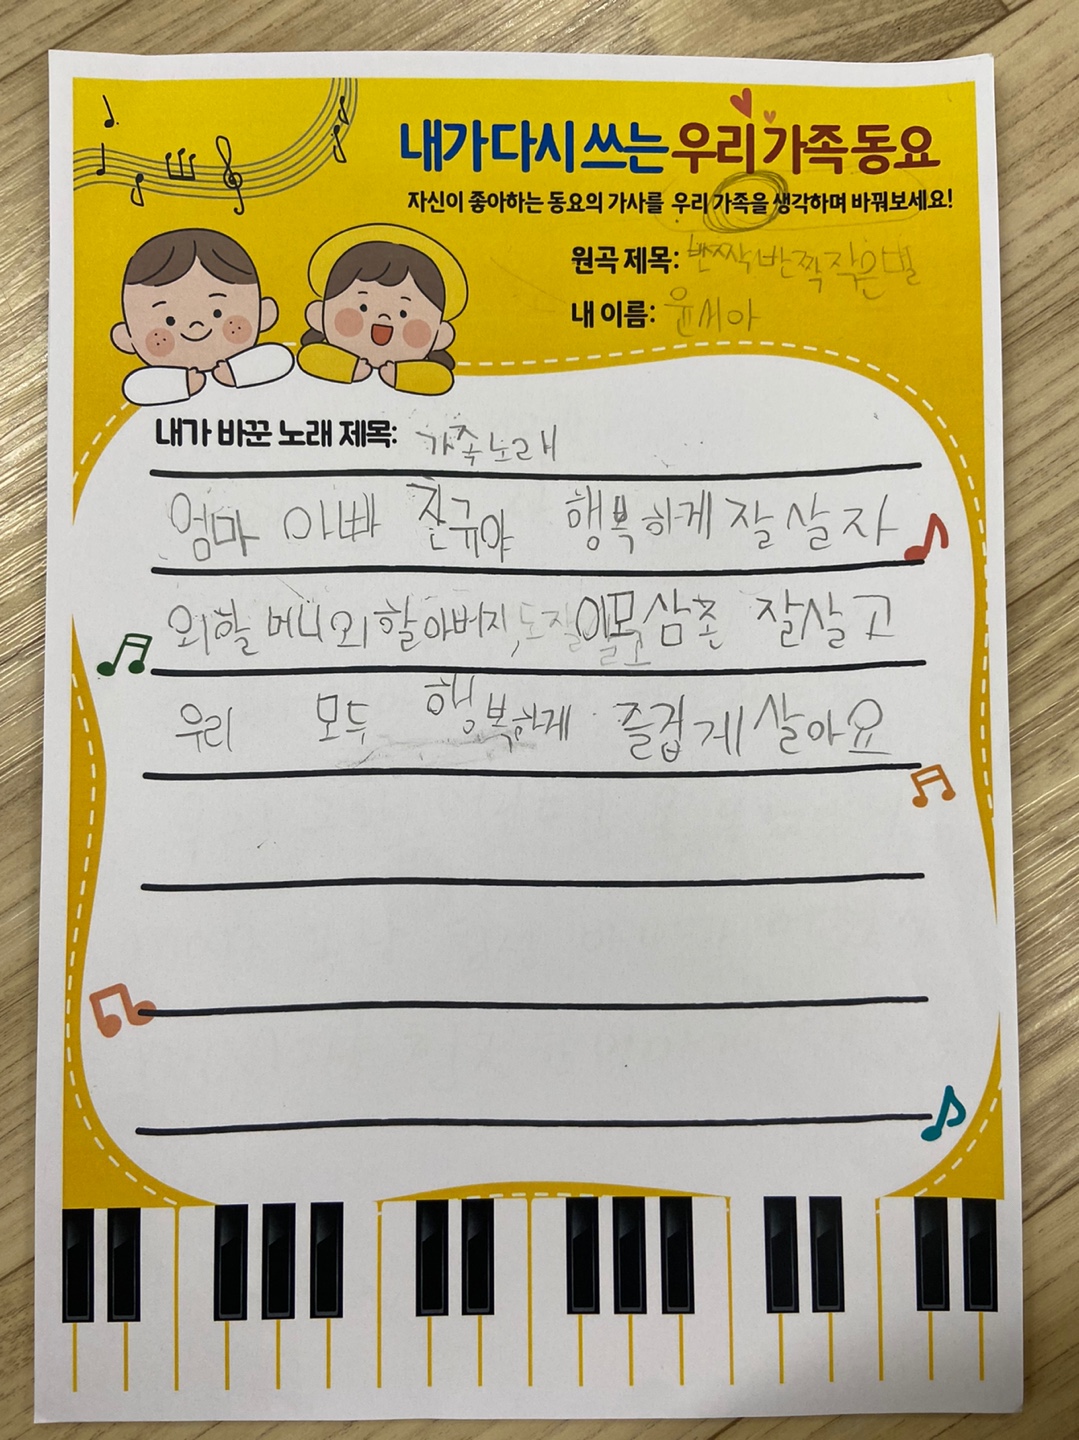 내가 다시 쓰는 우리 가족 동요
자신이 좋아하는 동요의 가사를 우리 가족을 생각하며 바꿔보세요!
원곡 제목: 반짝반짝작은별
내 이름: 윤서아
내가 바꾼 노래 제목: 가족노래
엄마 아빠 진규야 행복하게 잘살자
외할머니외할아버지, 이모삼촌 잘살고
우리 모두 행복하게 즐겁게살아요